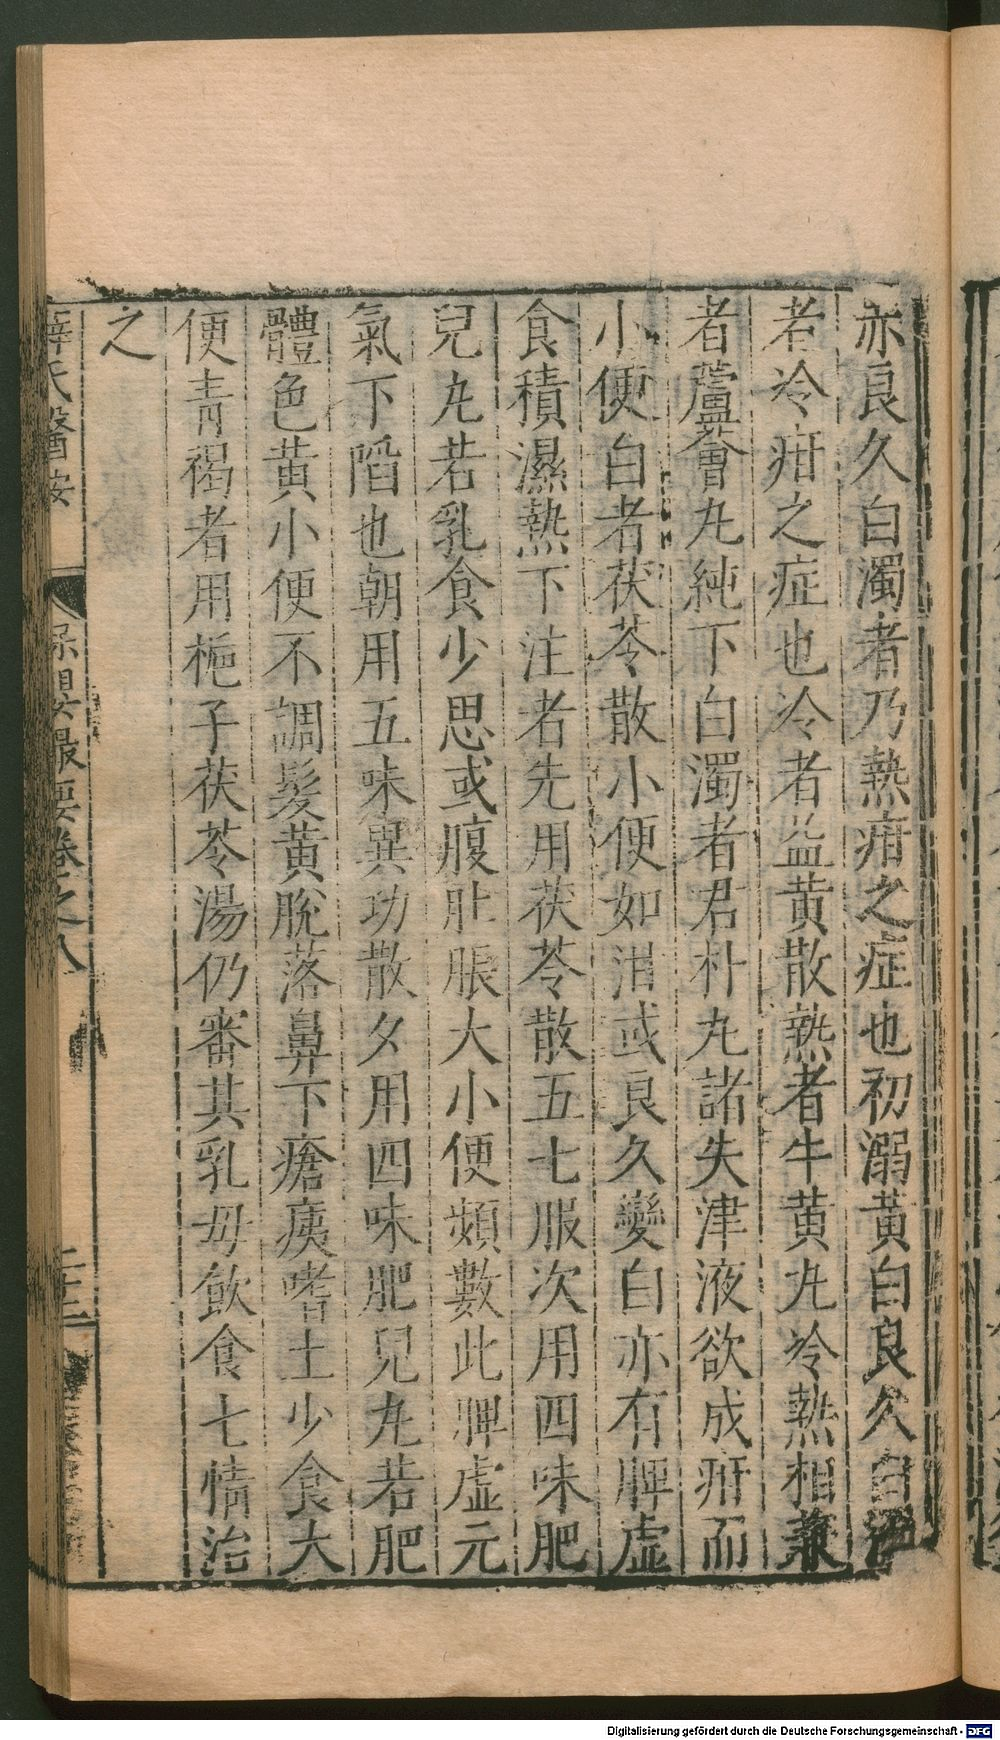 赤良久白濁者乃熱疳之症也初溺黄白良久白濁
者冷疳之症也冷者益黄散熱者牛黄丸冷熱相兼
者蘆薈丸純下白濁者君朴丸諸失津液欲成疳而
小便白者茯苓散小便如泔或良久變白亦有脾虚
食積濕熱下注者先用茯苓散五七服次用四味肥
兒丸若乳食少思或腹肚脹大小便頻數此脾虚元
氣下陷也朝用五味異功散夕用四味肥兒丸若肥
體色黄小便不調髮黄脫落鼻下瘡痍嗜土少食大
便青褐者用梔子茯苓湯仍審其乳母飲食七情治
之
薛氏醫按
保嬰撮要卷之八
Digitalisierung gefördert durch die Deutsche Forschungsgemeinschaft - DFG